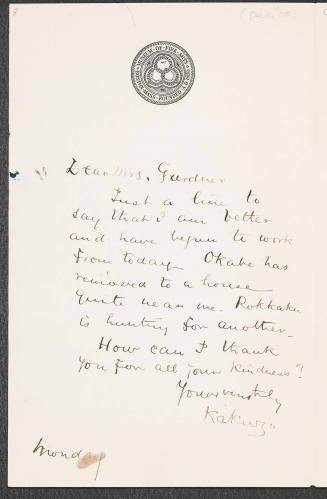 MUSEUM OF FINE ARTS
BOSTON MASS FOUNDED
Dear Mrs. Gardner
Just a line to
say that I am better
and have begun to work
from today. Okabe has
removed to a house
quite near me. Rokkaku
is hunting for another.
How can I thank
you for all your kindness?
Kakuzo
Monday